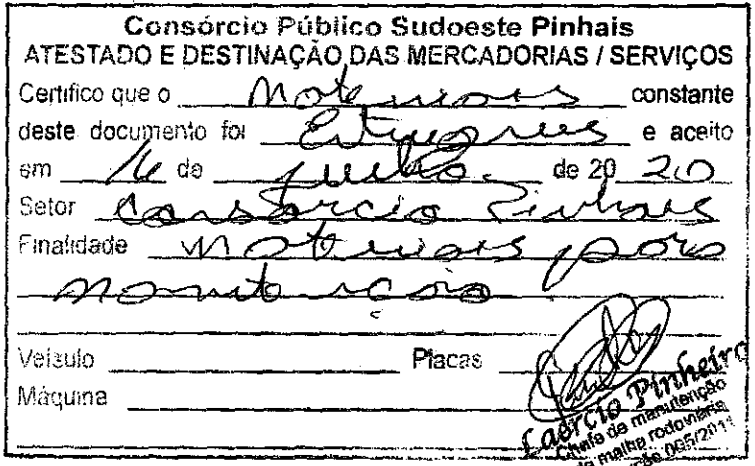 Consórcio Público Sudoeste Pinhais
ATESTADO E DESTINAÇÃO DAS MERCADORIAS / SERVIÇOS
Certifico que o Materiais constante
deste documento foi Entregues e aceito
em 16 de de 20 20
Setor Consórcio Pinhais
Finalidade Materiais para
manutenção
Veículo Placas
Máquina
Laércio Pinheiro
Chefe de manutenção
da malha rodoviária
005/2011